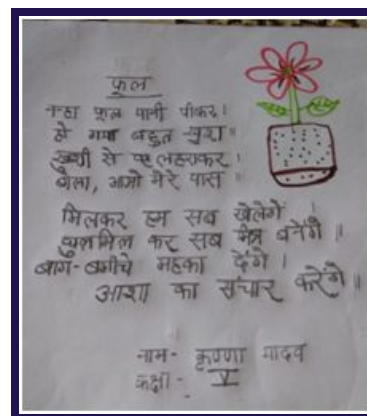 फूल
नन्हा फूल पानी पीकर।
हो गया बहुत खुश॥
खुशी से वह लहराकर।
बोला, आओ मेरे पास॥
मिलकर हम सब खेलेगें।
घुलमिल कर सब मित्र बनेंगे॥
बाग-बगीचे महका देंगे।
आशा का संचार करेंगे॥
नाम- कृष्णा यादव
कक्षा- V